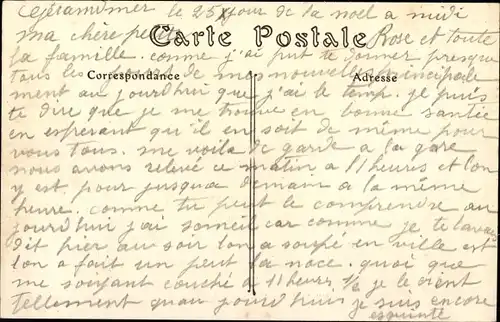 Gérardmer le 25 jour de la noel a midi
ma chère petite Rose et toute
Carte Postale
la famille. comme j'ai put te donner presque
tous les de mes nouvelles principale
Correspondance Adresse
ment au jourd'hui que j'ai le temp. je puis
te dire que je me trouve en bonne santée
en esperant qu'il en soit de même pour
vous tous. me voila de garde a la gare
nous avons relevé ce matin a 11 heures et lon
y est pour jusqua demain a la même
heure. comme tu peut le comprendre au
jourd'hui j'ai someil car comme je te lavais
dit hier au soir lon a soupé en ville est
lon a fait un peut la noce. quoi que
me soiyant couché a 11 heures 1/2 je le vient
tellement quau jourd'hui je suis encore
esquinté